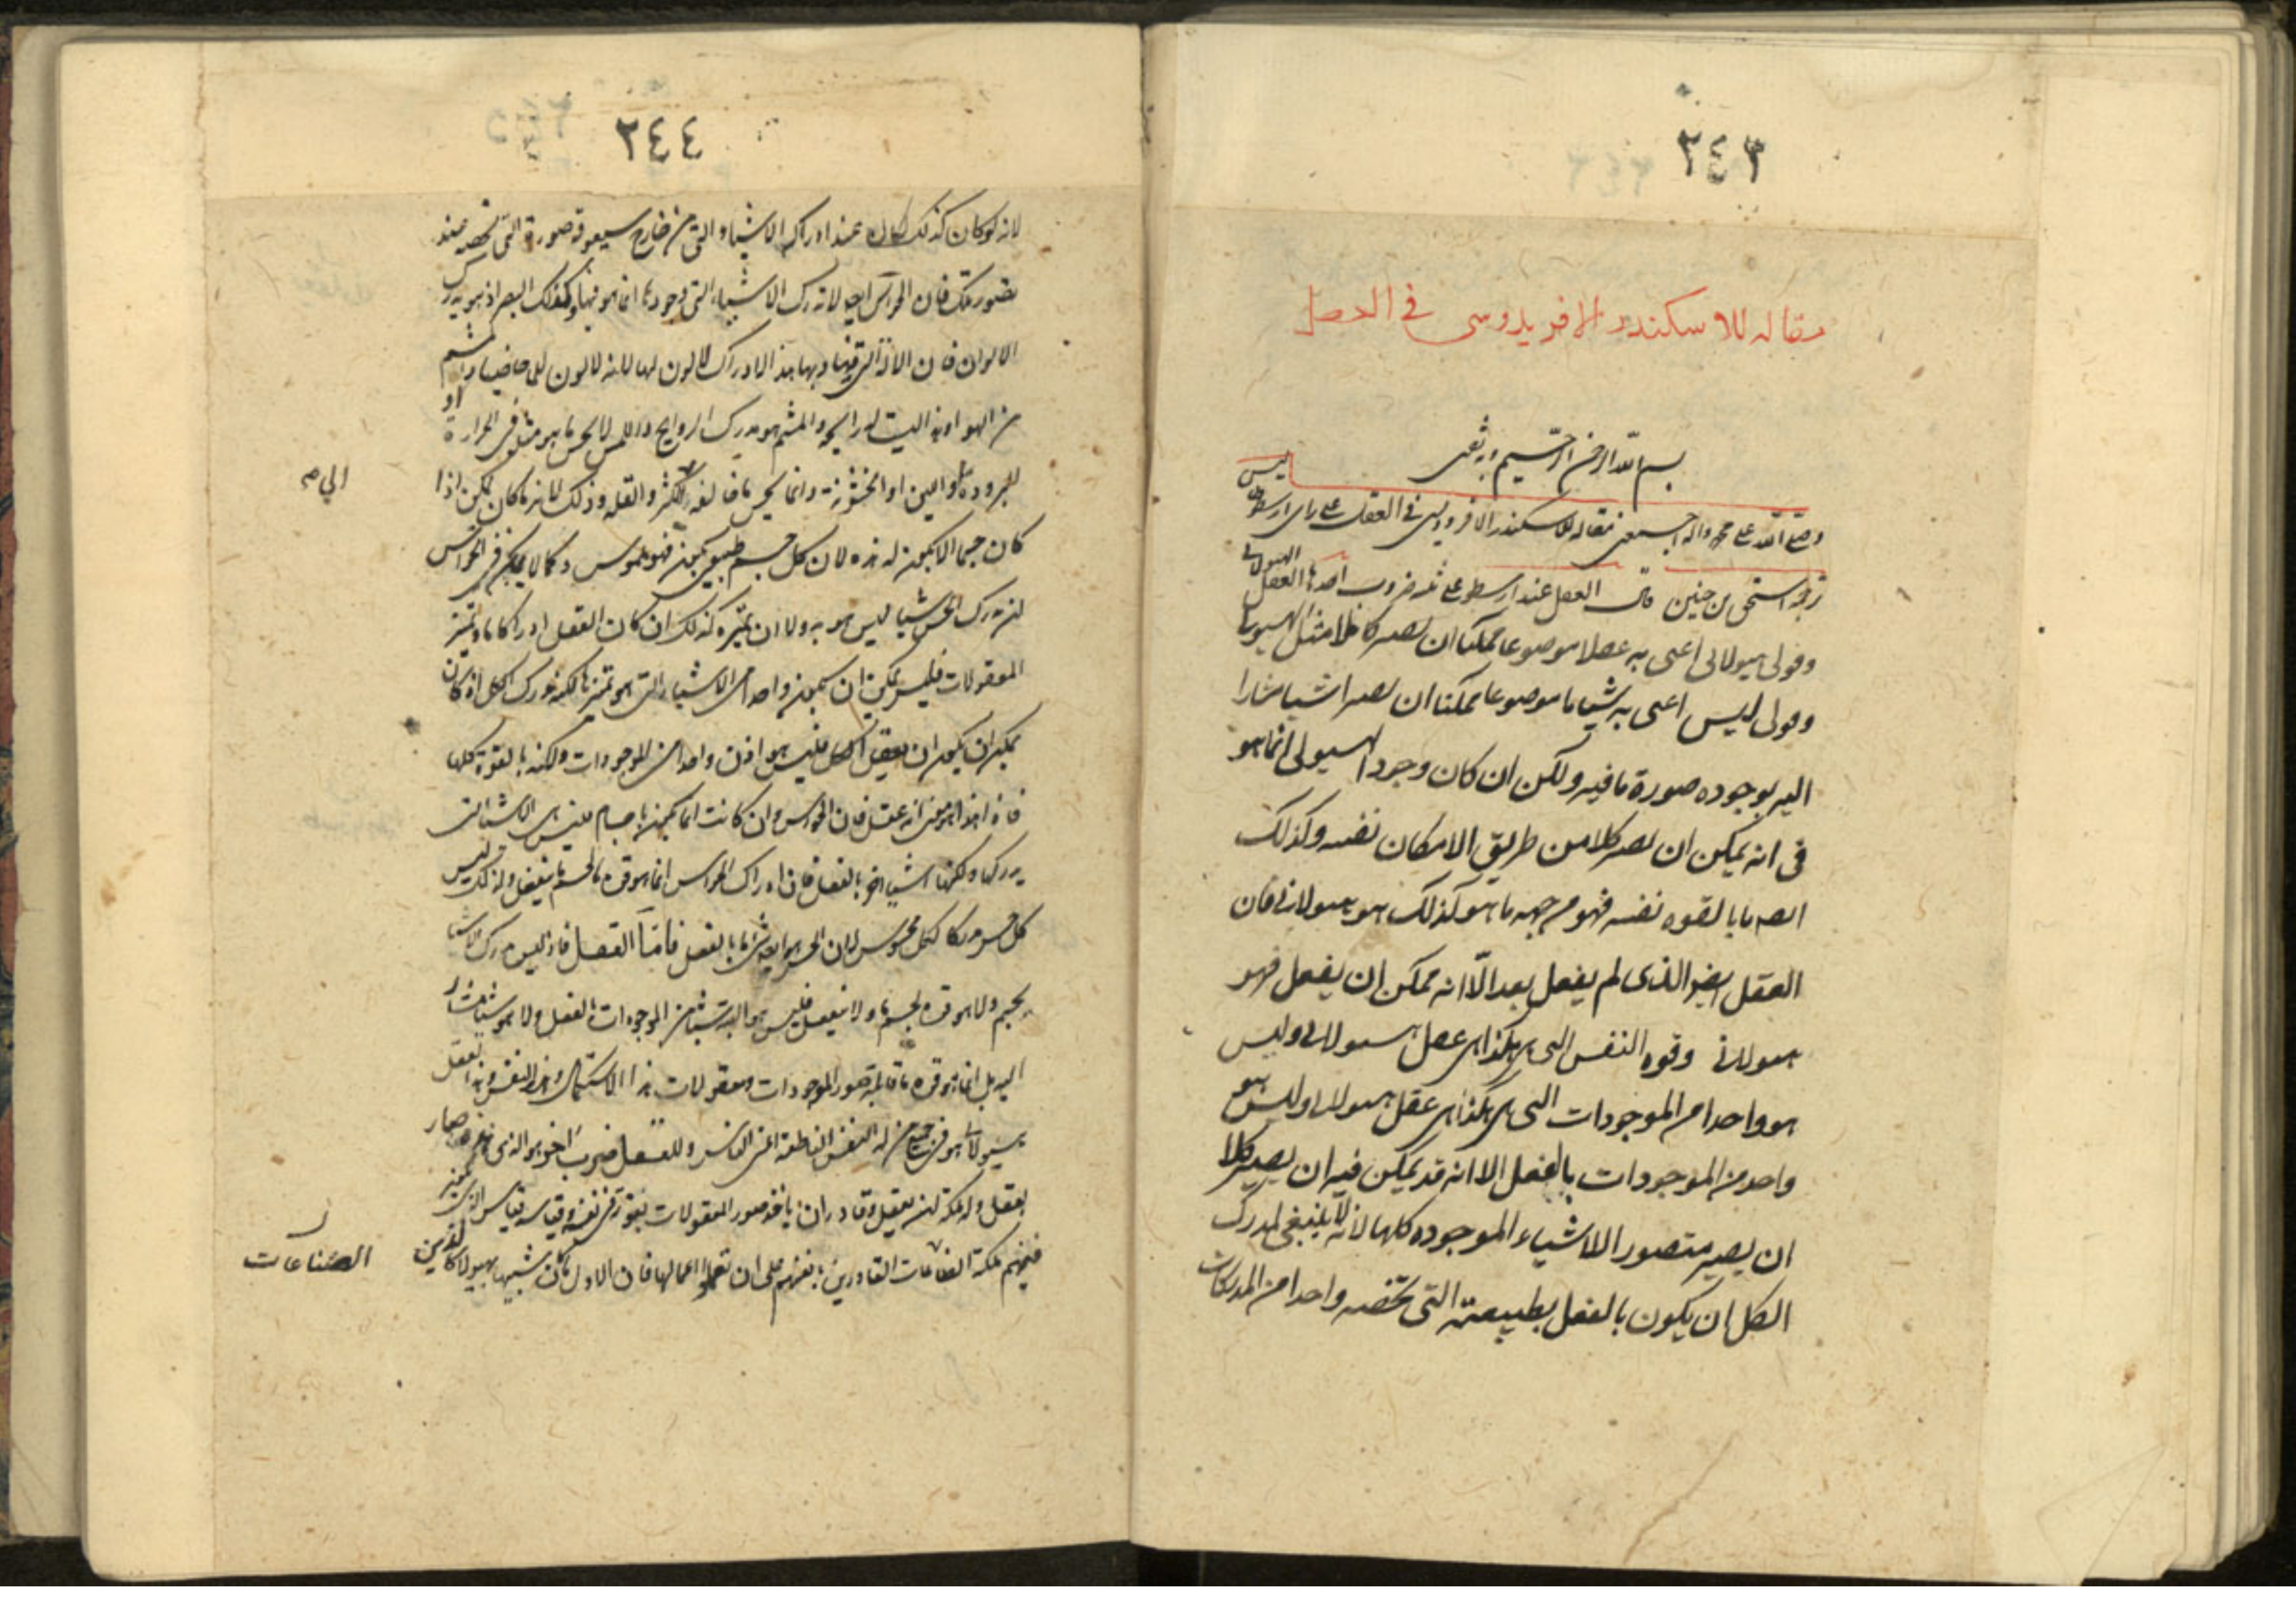 ٢٤٣
مقاله للاسكندر الافريدوسى فى العقل
بسم الله الرحمن الرحيم وبه ثقتى
وصلى الله على محمد واله اجمعين مقاله للاسكندر الافروديسى فى العقل على راى ارسطو
ترجمة اسحق بن حنين قال العقل عند ارسطو على ثلثه ضروب احدها العقل الهيولانى
وقولى هيولانى اعنى به عقلا موضوعا ممكنا ان يصير كاملا مثل الهيولى
وقولى ليس اعنى به شيئا ما موضوعا ممكنا ان يصير اشيا مشارا
اليه بوجوده صورة ما فيه ولكن ان كان وجود الهيولى انما هو
فى انه يمكن ان يصير كلا من طريق الامكان نفسه وكذلك
ايضا ما بالقوه نفسه فهو من جهه ما هو كذلك هو هيولانى فان
العقل ايضا الذى لم يفعل بعد الّا انه ممكن ان يفعل فهو
هيولانى وقوه النفس التى هى هكذا هى عقل هيولانى وليس
هو واحدا من الموجودات التى هى هكذا هى عقل هيولانى وليس هو
واحد من الموجودات بالفعل الا انه قد يمكن فيه ان يصير كلا
ان يصير متصور الاشياء الموجوده كلها لانه لا ينبغى لمدرك
الكل ان يكون بالفعل بطبيعته التى تخصه واحدا من المدركات
٢٤٤
لانه لو كان كذلك لكان عند ادراكه الاشياء التى من خارج سيعوقه صورة التى تخصه عند
تصور تلك فان الحواس ايضا لا تدرك الاشياء التى وجودها انما هو فيها وكذلك البصر اذ هو يدرك
الالوان فان الالة التى فيها وبها هذا الادراك لا لون لها لانه لا لون للماء خاصيا والمشم
من الهواء وهذا ليست له رائحه والمشم هو مدرك الروايح واللمس لا يحس ما هو مثله فى الحرارة او
البروده او اللين او الخشونة وانما يحس ما خالفه بالكثرة والقله وذلك لانه ما كان يمكن اذا
كان جسما الا يكون له هذه لان كل جسم طبيعى يكون فهو ملموس وكما لا يمكن فى الحواس
ان تدرك الحس شيئا ليس هو به ولا ان يتميزه كذلك ان كان العقل ادراكا ما وتميز
المعقولات فليس يمكن ان يكون واحدا من الاشياء التى هو تميزها لكنه مدرك الكل اذ كان
يمكن ان يكون ان يعقل الكل فليس هو اذن واحدا من الموجودات ولكنه بالقوة كلها
فان هذا هو معنى انه عقل فان الحواس وان كانت انما تكون باجسام فليس هى الاشيا التى
يدركها ولكنها اشيا اخر بالفعل فان ادراك الحواس انما هو قوه ما لجسم ما ينفعل ولذلك ليس
كل حس مدركا لكل محسوس لان الحس هو ايضا شى ما بالفعل فامّا العقل فانه ليس يدرك الاشيا
بجسم ولا هو قوه لجسم ما ولا ينفعل فليس هو البته شيئا من الموجودات بالفعل ولا هو شى مشار
اليه بل انما هو قوه ما قابله لصور الموجودات ومعقولات هذا الاستكمال وهذه النفس وهذا العقل
هيولانى هو فى جميع من له النفس الناطقه اعنى الناس وللعقل ضرب اخر هو الذى قد صار
يعقل وله ملكة ان يعقل وقادر ان ياخذ صور المعقولات بقوته فى نفسه وقياسه قياس الذين
فيهم ملكة الصناعات القادرين بانفسهم على ان يعملوا اعمالها فان الاول ما كان شبيها بهولا كالذين
الصناعات